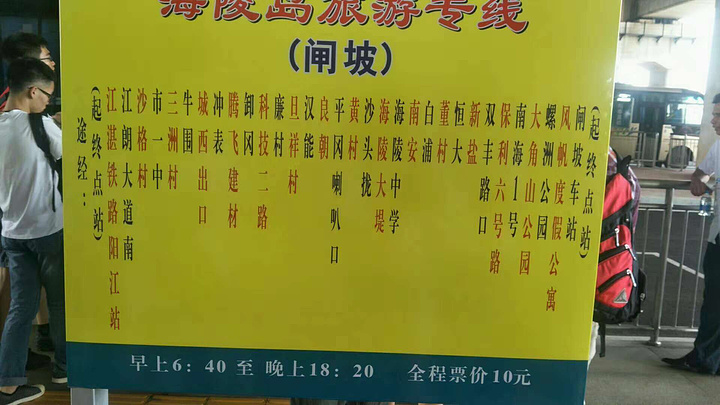 海陵岛旅游专线
(闸坡)
途经：
(起终点站)
江湛铁路阳江站
江朗大道南
沙格村
市一中
三洲村
牛围
城西出口
冲表
腾飞建材
卸冈
科技二路
廉村
旦祥村
汉能
良朝
平冈喇叭口
黄村
沙头拢
海陵大堤
海陵中学
南安
白浦
董村
恒大
新盐
双丰路口
保利六号路
南海1号
大角山公园
螺洲公园
风帆度假公寓
闸坡车站
(起终点站)
早上6：40 至 晚上18：20 全程票价10元